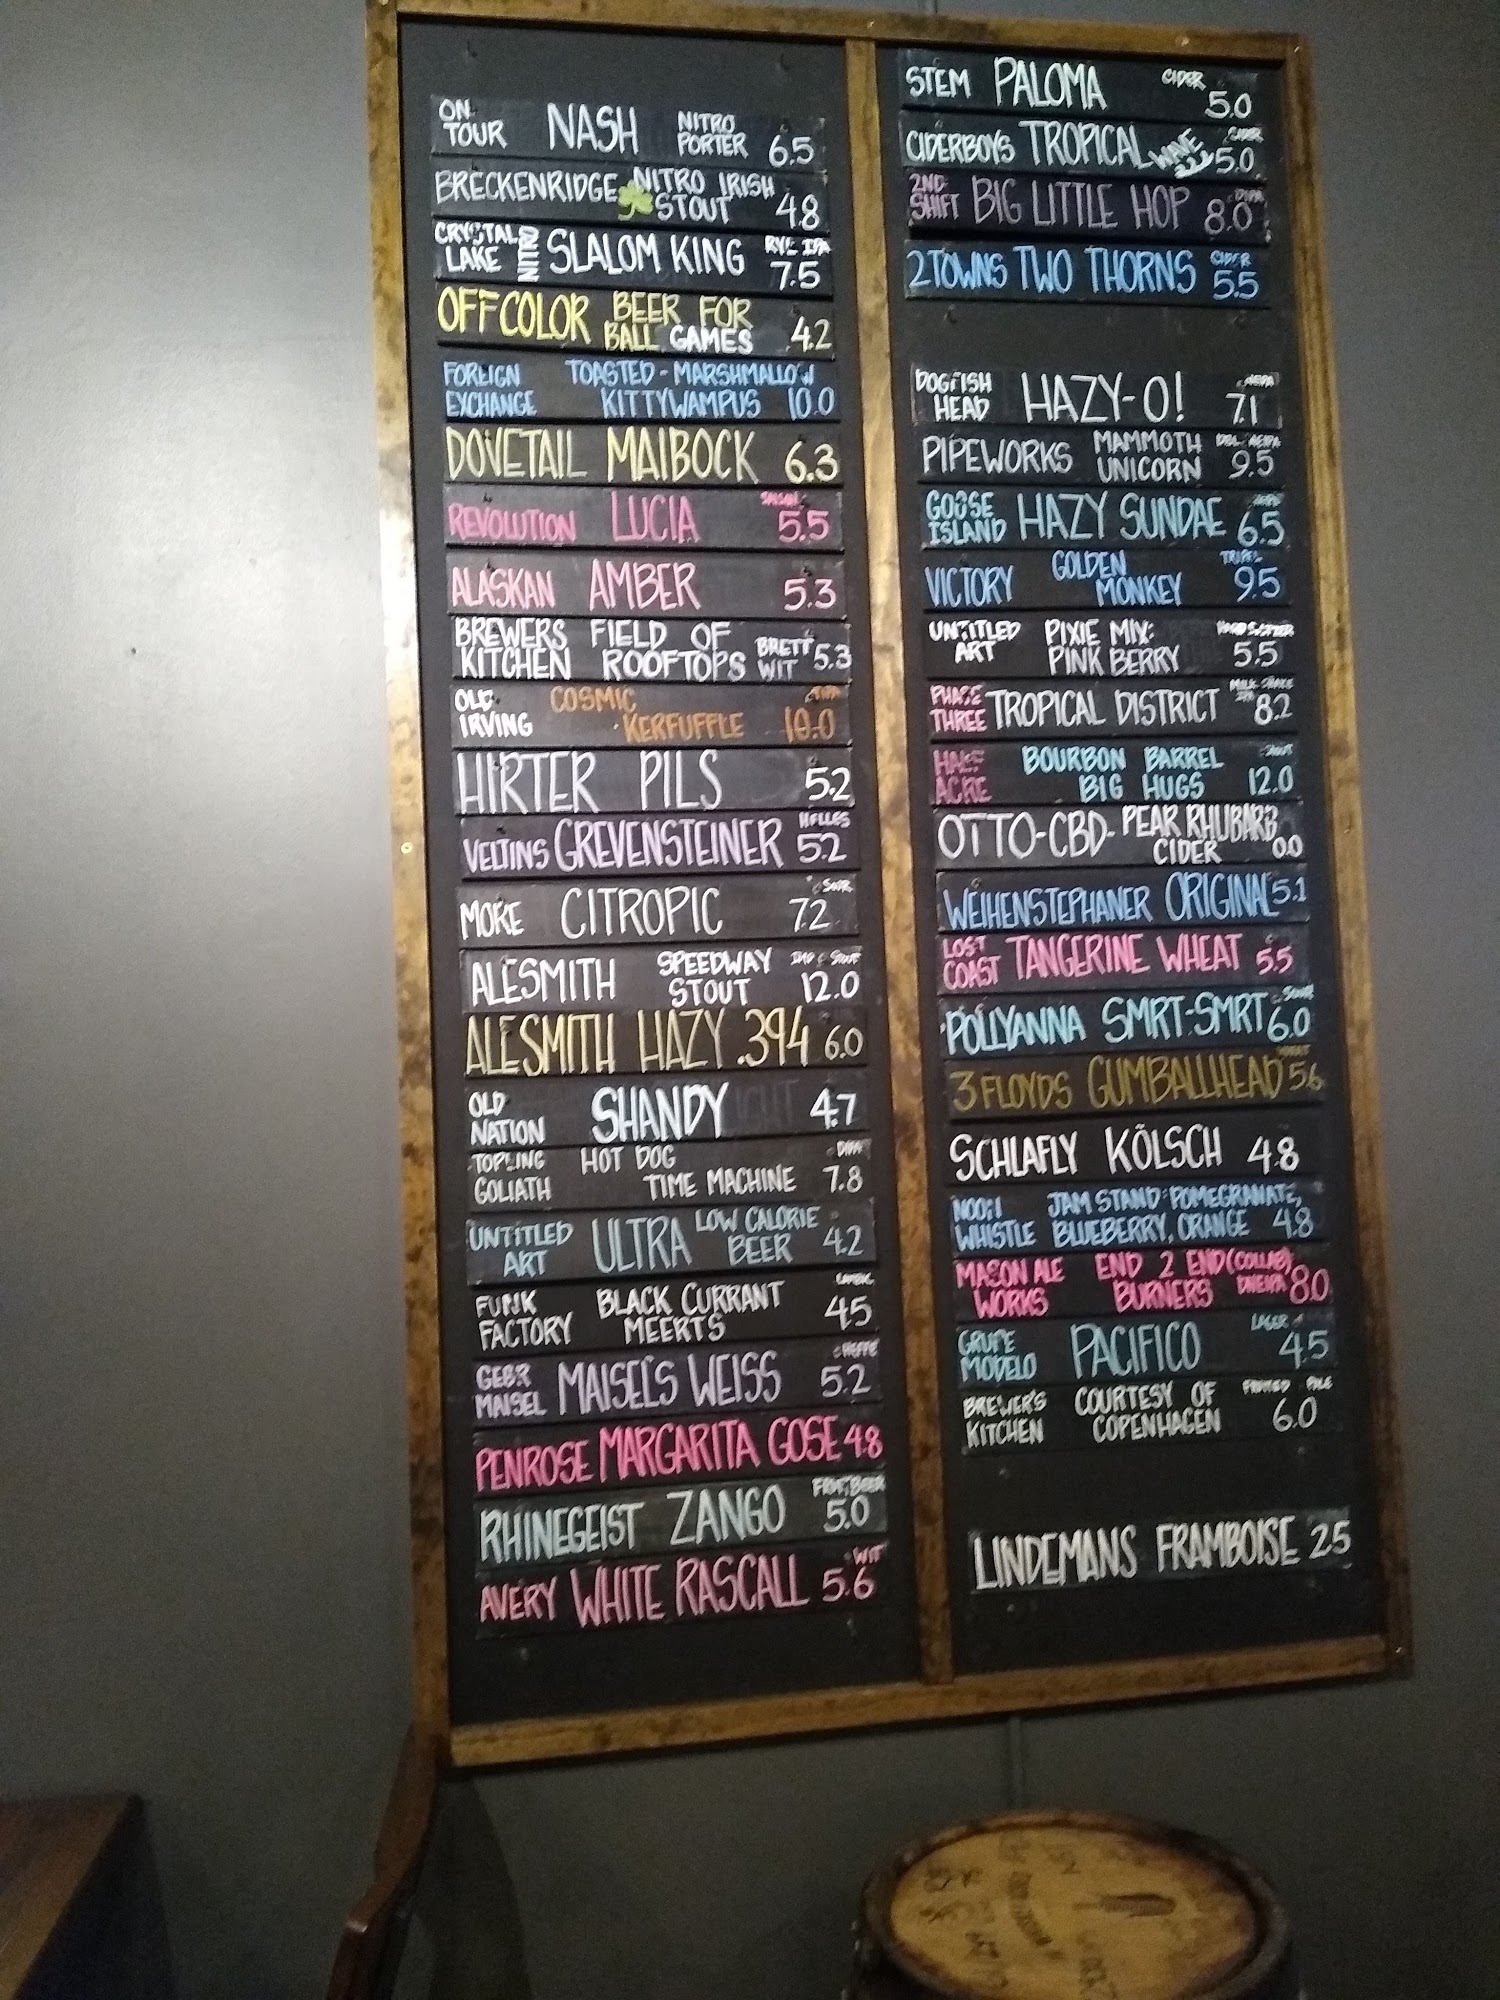 ON TOUR NASH NITRO PORTER 6.5
BRECKENRIDGE NITRO IRISH STOUT 4.8
CRYSTAL LAKE NITRO SLALOM KING RYE IPA 7.5
OFF COLOR BEER FOR BALL GAMES 4.2
FOREIGN EXCHANGE TOASTED-MARSHMALLOW KITTYWAMPUS 10.0
DOVETAIL MAIBOCK 6.3
REVOLUTION LUCIA SAISON 5.5
ALASKAN AMBER 5.3
BREWERS KITCHEN FIELD OF ROOFTOPS BRETT WIT 5.3
OLD IRVING COSMIC KERFUFFLE 10.0
HIRTER PILS 5.2
VELTINS GREVENSTEINER HELLES 5.2
MORE CITROPIC SOUR 7.2
ALESMITH SPEEDWAY STOUT IMP STOUT 12.0
ALESMITH HAZY .394 6.0
OLD NATION SHANDY 4.7
TOPLING GOLIATH HOT DOG TIME MACHINE DIPA 7.8
UNTITLED ART ULTRA LOW CALORIE BEER 4.2
FUNK FACTORY BLACK CURRANT MEERTS LAMBIC 4.5
GEBR MAISEL MAISEL'S WEISS HEFE 5.2
PENROSE MARGARITA GOSE 4.8
RHINEGEIST ZANGO FRUIT BEER 5.0
AVERY WHITE RASCALL WIT 5.6
STEM PALOMA CIDER 5.0
CIDERBOYS TROPICAL WAVE CIDER 5.0
2ND SHIFT BIG LITTLE HOP DIPA 8.0
2 TOWNS TWO THORNS CIDER 5.5
DOGFISH HEAD HAZY-O! NEIPA 7.1
PIPEWORKS MAMMOTH UNICORN DBL NEIPA 9.5
GOOSE ISLAND HAZY SUNDAE 6.5
VICTORY GOLDEN MONKEY TRIPEL 9.5
UNTITLED ART PIXIE MIX: PINK BERRY HARD SELTZER 5.5
PHASE THREE TROPICAL DISTRICT MILK SHAKE IPA 8.2
HALF ACRE BOURBON BARREL BIG HUGS STOUT 12.0
OTTO-CBD- PEAR RHUBARB CIDER 0.0
WEIHENSTEPHANER ORIGINAL 5.1
LOST COAST TANGERINE WHEAT 5.5
POLLYANNA SMRT-SMRT SOUR 6.0
3 FLOYDS GUMBALLHEAD WHEAT 5.6
SCHLAFLY KÖLSCH 4.8
NOON WHISTLE JAM STAND: POMEGRANATE, BLUEBERRY, ORANGE 4.8
MASON ALE WORKS END 2 END (COLLAB) BURNERS DNEIPA 8.0
GRUPE MODELO PACIFICO LAGER 4.5
BREWER'S KITCHEN COURTESY OF COPENHAGEN FRUITED ALE 6.0
LINDEMANS FRAMBOISE 2.5